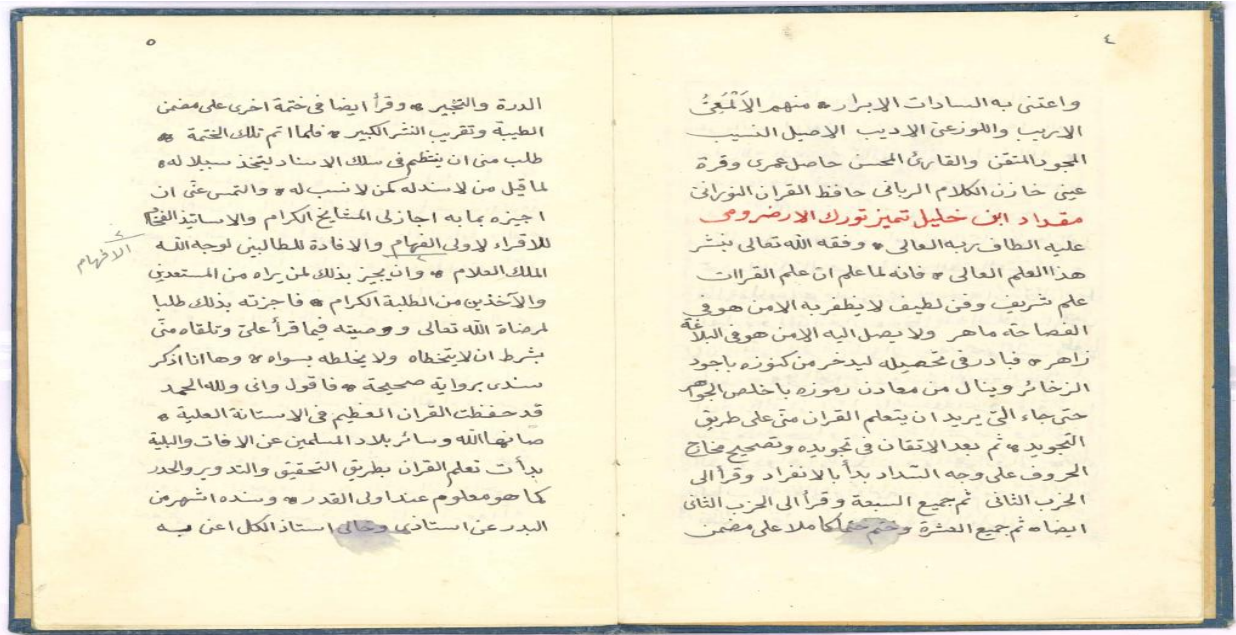 ٤
واعتنى به السادات الابرار * منهم الاَلْمَعِىُّ
الاريب واللوزعىّ الاديب الاصيل النسيب
المجود المتقن والقارئ المحسن حاصل عمرى وقرة
عينى خازن الكلام الربانى حافظ القران النورانى
مقداد ابن خليل تميز تورك الارضرومى
عليه الطاف ربه العالى * وفقه الله تعالى بنشر
هذا العلم العالى * فانه لما علم ان علم القراات
علم شريف وفن لطيف لا يظفر به الا من هو فى
الفصاحة ماهر ولا يصل اليه الا من هو فى البلاغة
زاهر * فبادر فى تحصيله ليدخر من كنوزه باجود
الزخائر وينال من معادن رموزه باخلص الجواهر
حتى جاء الىّ يريد ان يتعلم القران منّى على طريق
التجويد * ثم بعد الاتقان فى تجويده وتصحيح مخارج
الحروف على وجه السّداد بدأ بالانفراد وقرأ الى
الحزب الثانى ثم جميع السبعة وقرأ الى الحزب الثانى
ايضا * ثم جميع العشرة وختم ختما كاملا على مضمن
٥
الدرة والتحبير * وقرأ ايضا فى ختمة اخرى على مضمن
الطيبة وتقريب النشر الكبير * فلما اتم تلك الختمة *
طلب منى ان ينتظم فى سلك الاسناد ليتخذ سبيلا له *
لما قيل من لا سند له كمن لا نسب له * والتمس عنّى ان
اجيزه بما به اجاز لى المشايخ الكرام والاساتيذ الفخام
للاقراء لاولى الفهام والافادة للطالبين لوجه الله
الافهام
الملك العلام * وان يجيز بذلك لمن يراه من المستعدين
والآخذين من الطلبة الكرام * فاجزته بذلك طلبا
لمرضاة الله تعالى ووصيته فيما قرأ علىّ وتلقاه منّى
بشرط ان لا يتخطاه ولا يخلطه بسواه * وها انا اذكر
سندى برواية صحيحة * فاقول وانى ولله الحمد
قد حفظت القران العظيم فى الاستانة العلية *
صانها الله وسائر بلاد المسلمين عن الافات والبلية
بدأت تعلم القران بطريق التحقيق والتدوير والحدر
كما هو معلوم عند اولى القدر * وسنده اشهر من
البدر عن استاذى وخالى استاذ الكل اعنى به